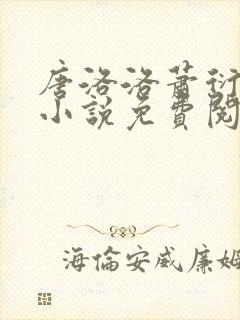 唐洛洛蕭衍
小說免費閱
海倫安威廉姆